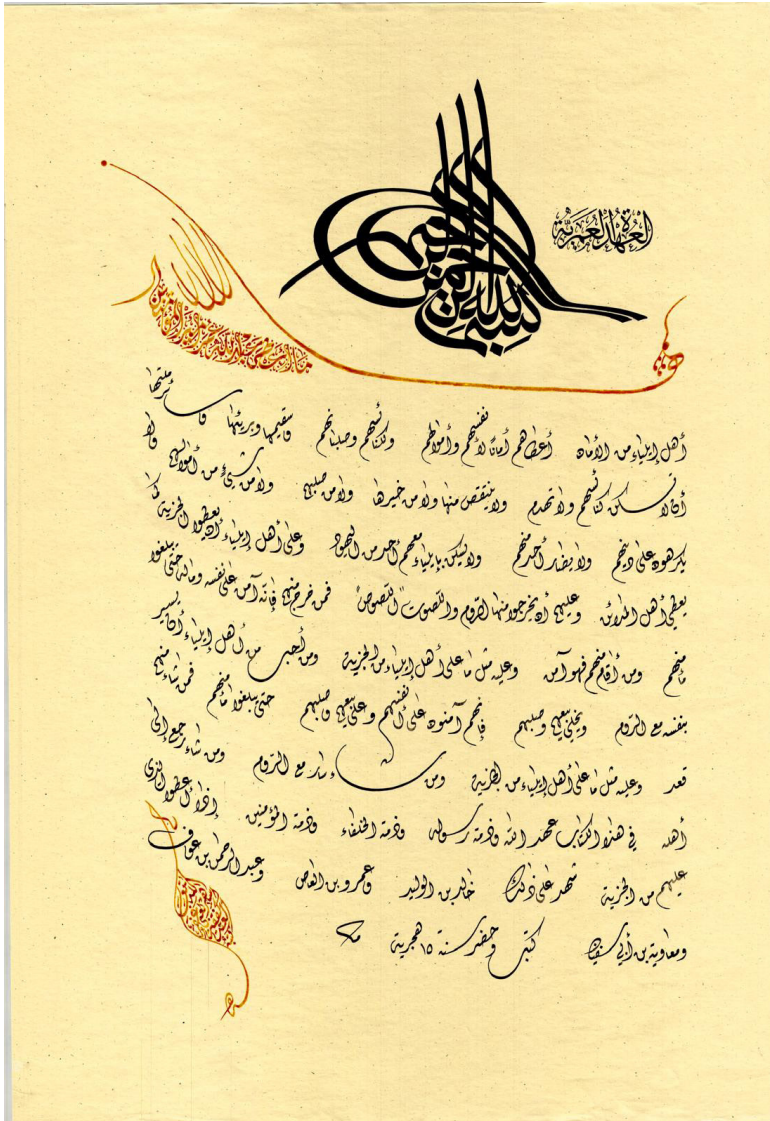 العهدة العمرية
بسم الله الرحمن الرحيم
هذا ما أعطى عبد الله عمر أمير المؤمنين
أهل إيلياء من الأمان أعطاهم أمانًا لأنفسهم وأموالهم ولكنائسهم وصلبانهم وسقيمها وبريئها وسائر ملتها
أن لا تسكن كنائسهم ولا تهدم ولا ينتقص منها ولا من خيرها ولا من صلبهم ولا من شيء من أموالهم ولا
يكرهون على دينهم ولا يضار أحد منهم ولا يسكن بإيلياء معهم أحد من اليهود وعلى أهل إيلياء أن يعطوا الجزية كما
يعطي أهل المدائن وعليهم أن يخرجوا منها الروم واللصوت "اللصوص" فمن خرج منهم فإنه آمن على نفسه وماله حتى يبلغوا
مأمنهم ومن أقام منهم فهو آمن وعليه مثل ما على أهل إيلياء من الجزية ومن أحب من أهل إيلياء أن يسير
بنفسه مع الروم ويخلي بيعهم وصلبهم فإنهم آمنون على أنفسهم وعلى بيعهم وصلبهم حتى يبلغوا مأمنهم فمن شاء منهم
قعد وعليه مثل ما على أهل إيلياء من الجزية ومن شاء سار مع الروم ومن شاء رجع إلى
أهله في هذا الكتاب عهد الله وذمة رسوله وذمة الخلفاء وذمة المؤمنين إذا أعطوا الذي
عليهم من الجزية شهد على ذلك خالد بن الوليد وعمرو بن العاص وعبد الرحمن بن عوف
ومعاوية بن أبي سفيان كتب وحضر سنة ١٥ هجرية